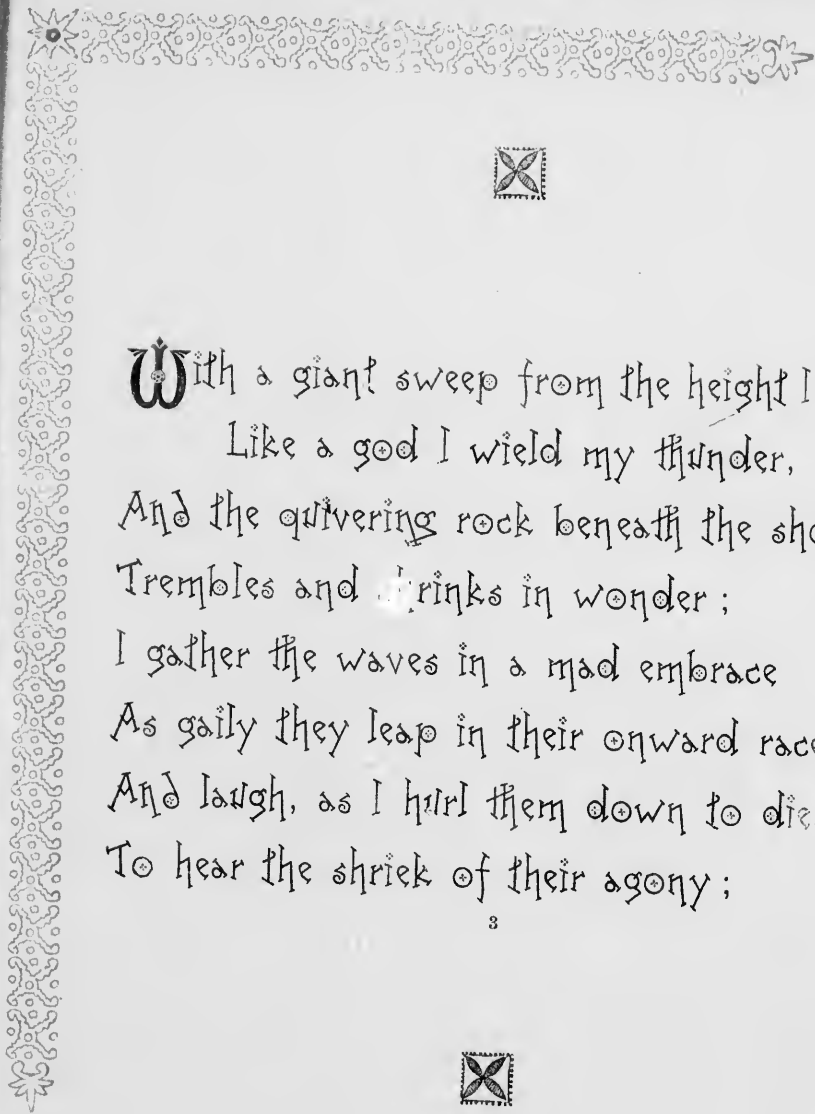 With a giant sweep from the height I
Like a god I wield my thunder,
And the quivering rock beneath the
Trembles and in wonder ;
I gather the waves in a mad embrace
As gaily they leap in their onward race
And laugh, as I hurl them down to die
To hear the shriek of their agony ;
3